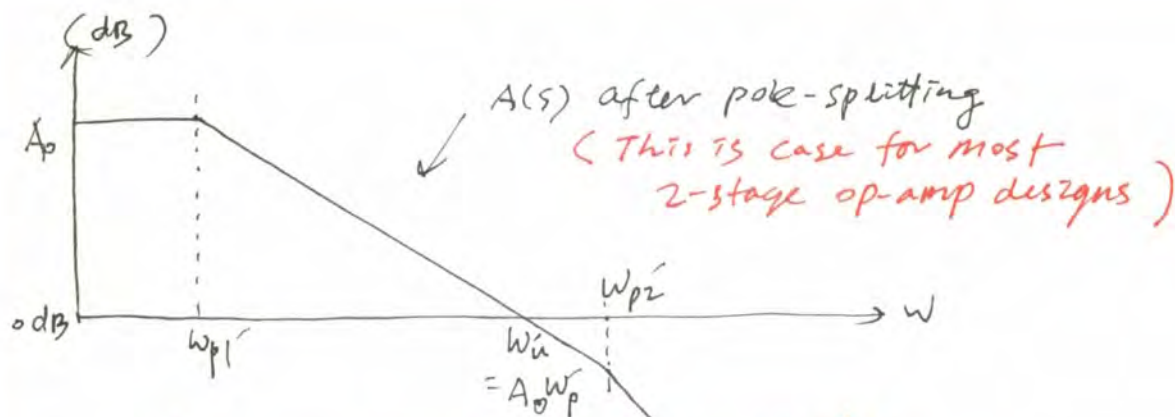 (dB)
A(s) after pole-splitting
(This is case for most
2-stage op-amp designs)
A₀
ωp2′
0 dB
ωp1′
ωu′
ω
= A₀ωp′